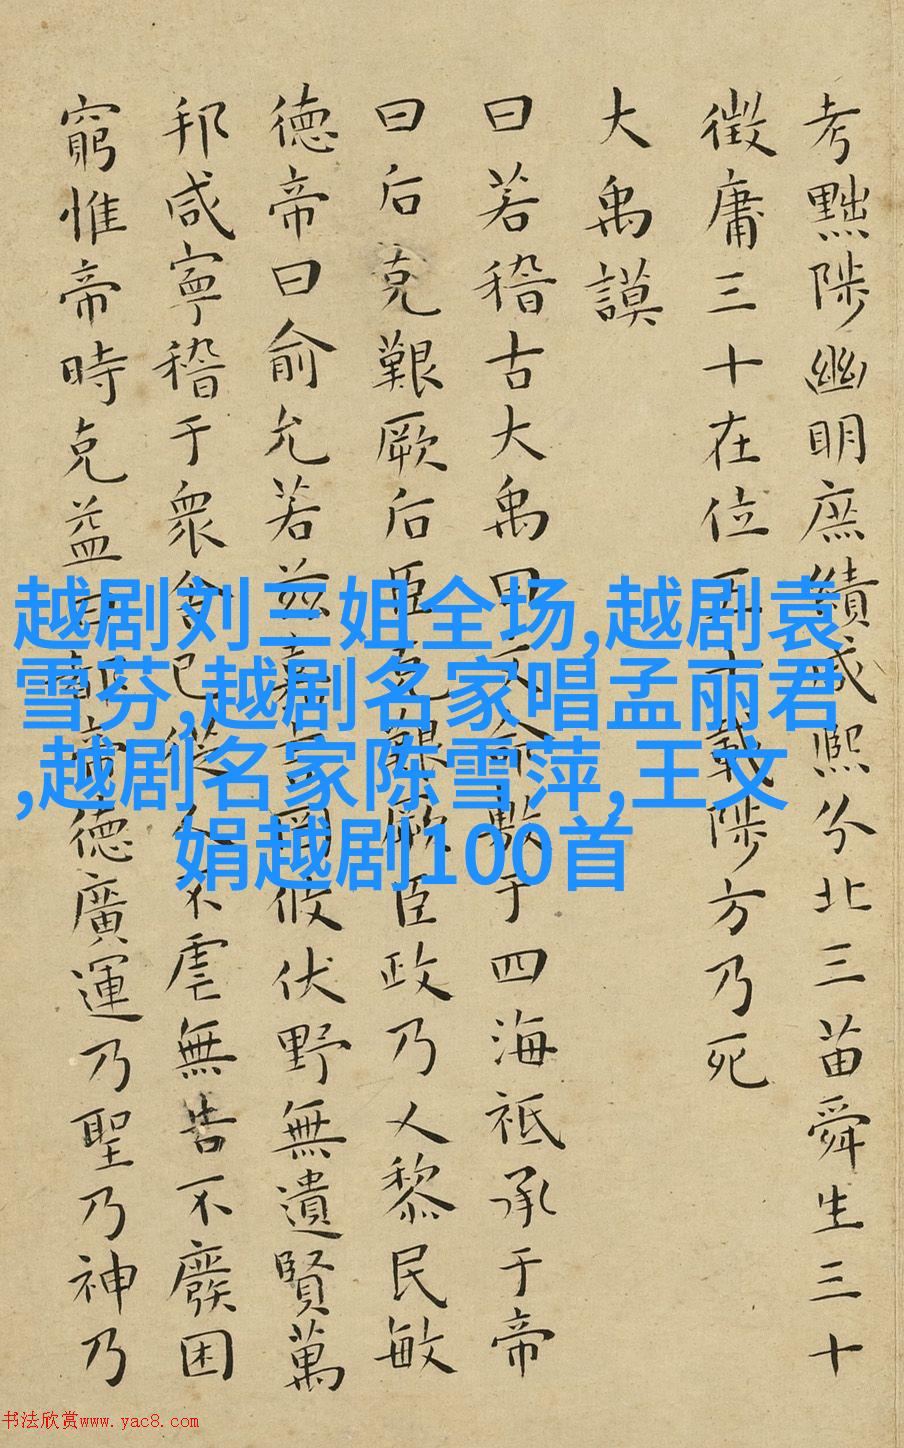 考黜陟幽明庶績咸熙分北三苗舜生三十
徵庸三十在位五十載陟方乃死
大禹謨
曰若稽古大禹曰文命敷于四海祗承于帝
曰后克艱厥后臣克艱厥臣政乃乂黎民敏
德帝曰俞允若茲嘉言罔攸伏野無遺賢萬
邦咸寧稽于衆舍己從人不虐無告不廢困
窮惟帝時克益曰都帝德廣運乃聖乃神乃
越剧刘三姐全场,越剧袁
雪芬,越剧名家唱孟丽君
,越剧名家陈雪萍,王文
娟越剧100首
书法欣赏www.yac8.com